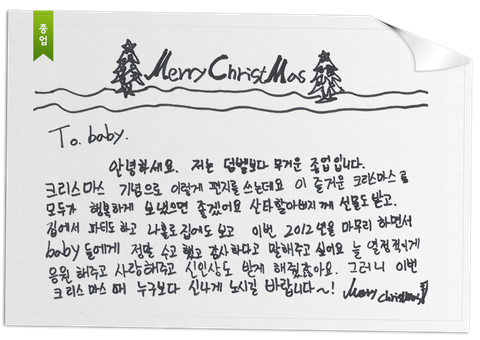 종업
Merry ChristMas
To. baby.
안녕하세요. 저는 덤벨보다 무거운 종업입니다.
크리스마스 기념으로 이렇게 편지를 쓰는데요 이 즐거운 크리스마스를
모두가 행복하게 보냈으면 좋겠어요 산타할아버지께 선물도 받고.
집에서 파티도 하고 나홀로집에도 보고 이번 2012년을 마무리 하면서
baby들에게 정말 수고했고 감사하다고 말해주고 싶어요 늘 열정적이게
응원해주고 사랑해주고 신인상도 받게 해줬잖아요. 그러니 이번
크리스마스때 누구보다 신나게 노시길 바랍니다~! Merry christmas!